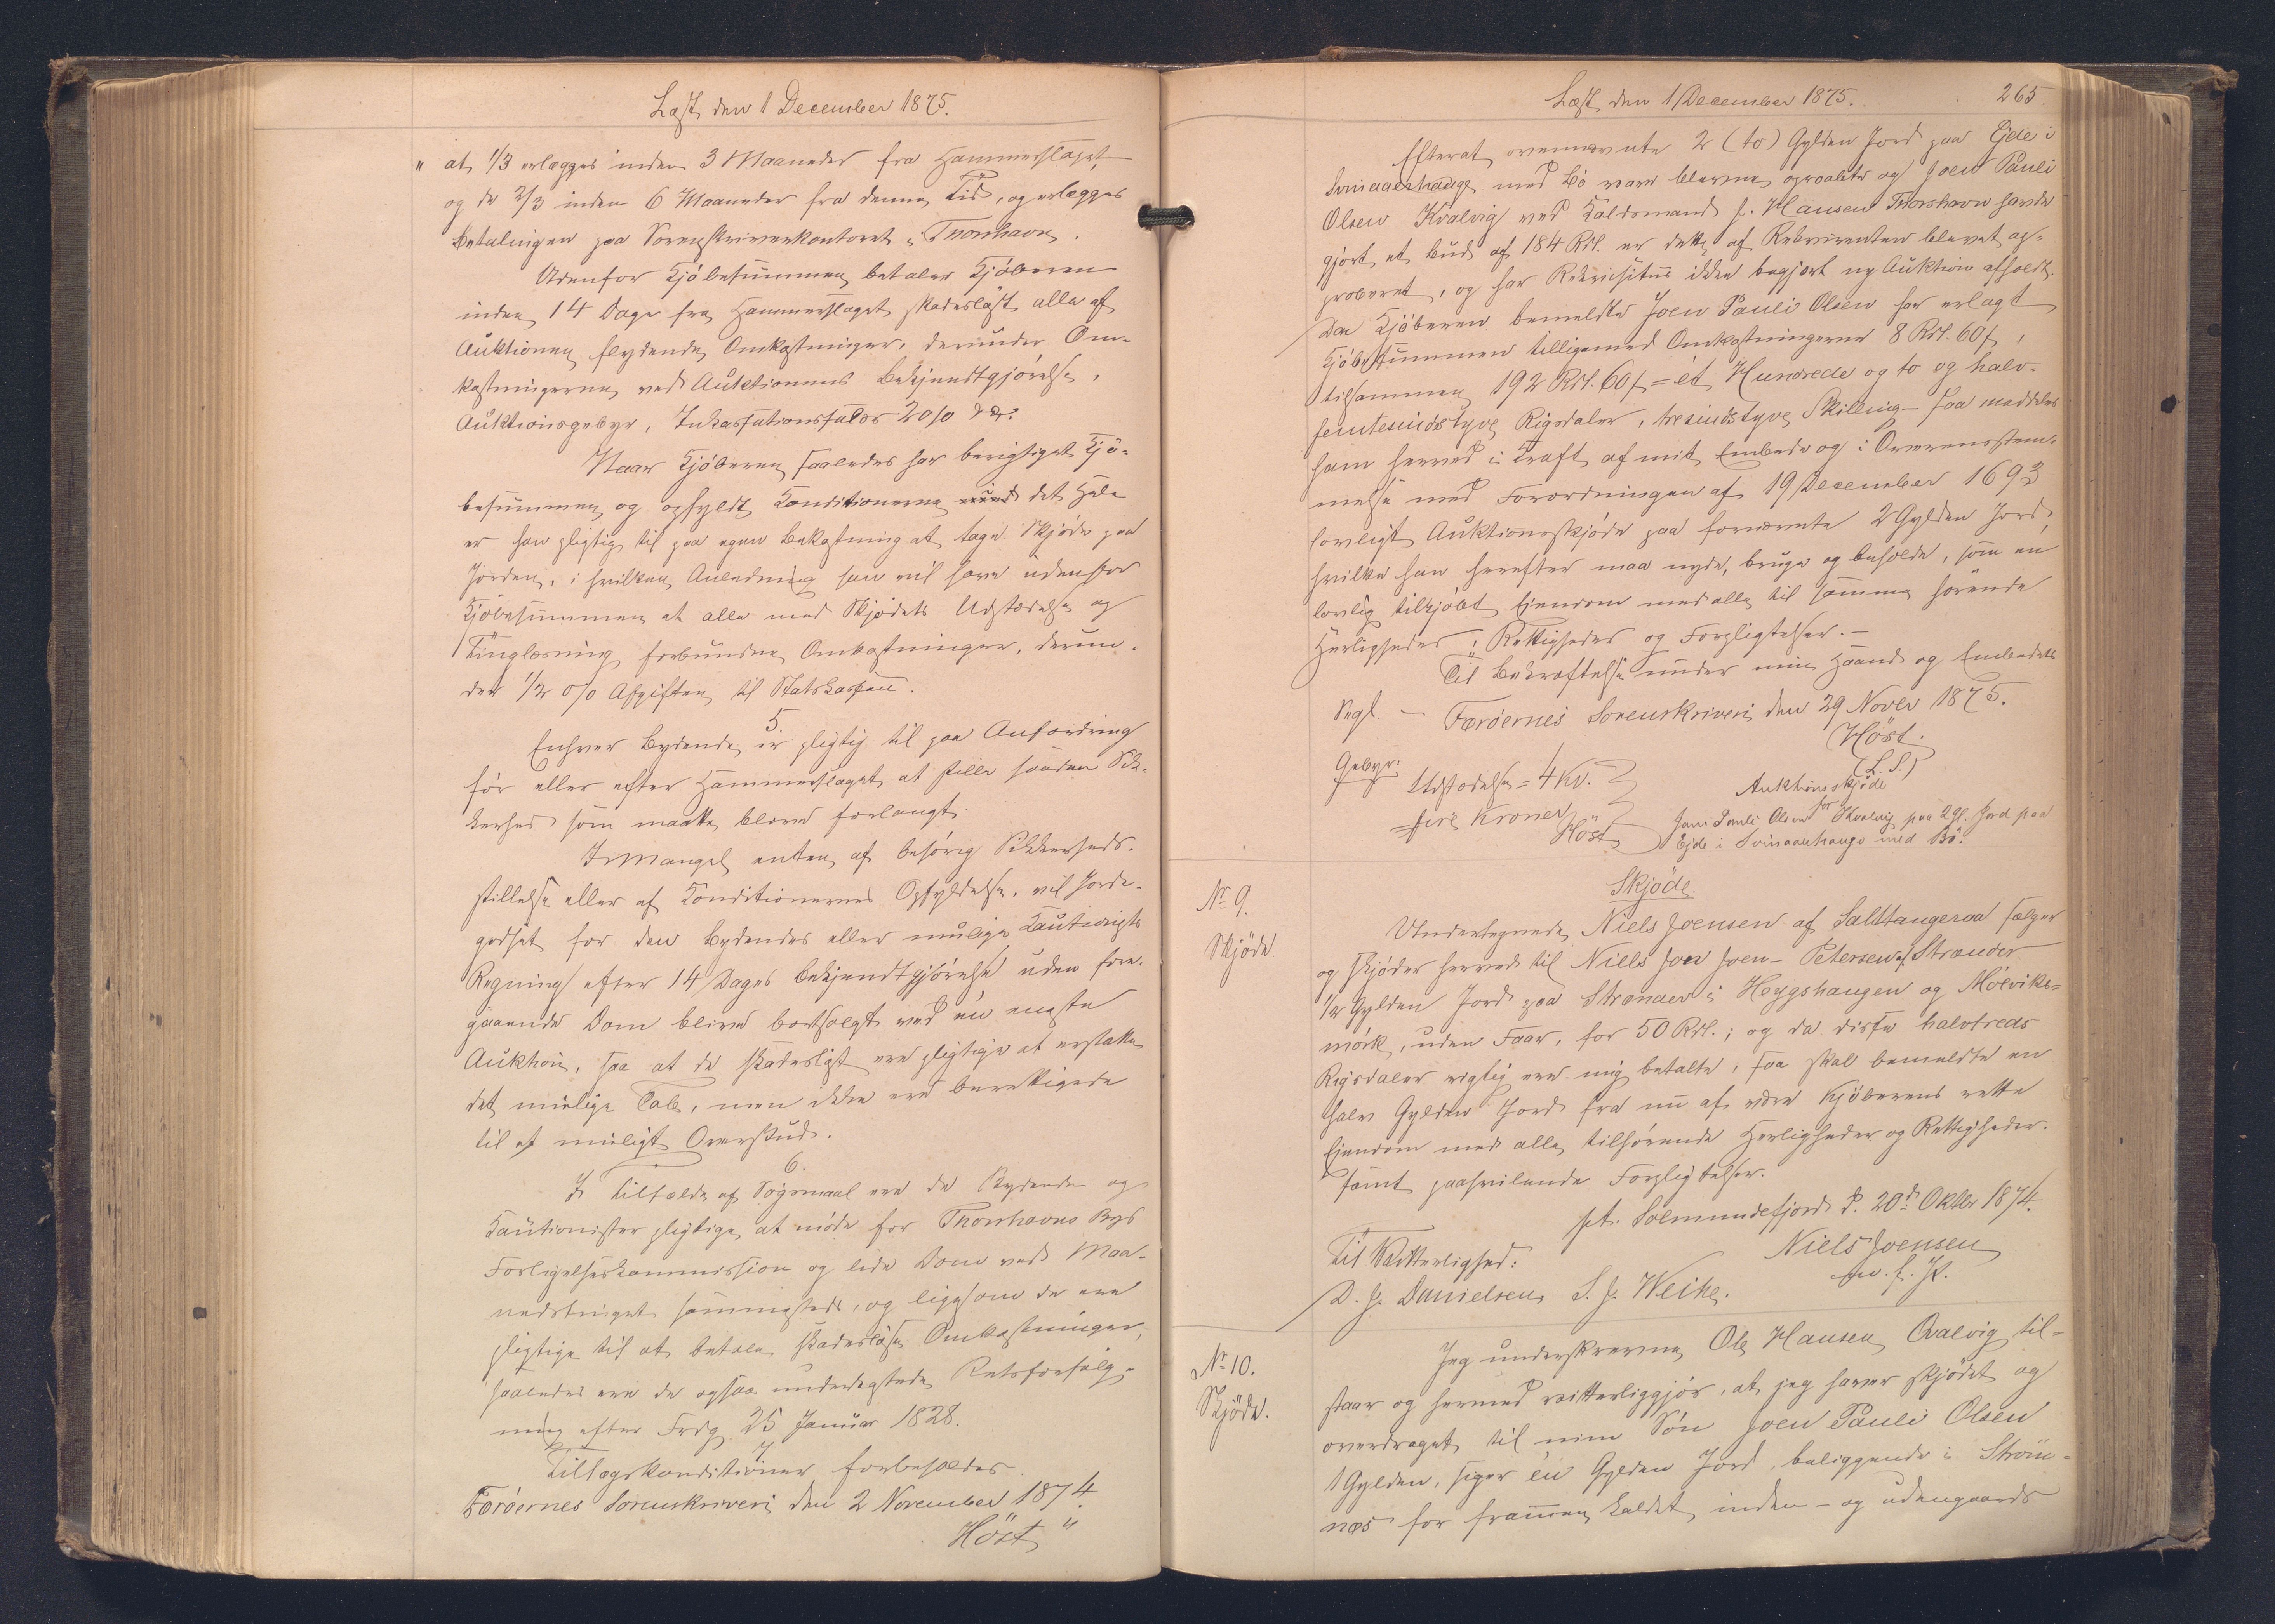 Læst den 1 December 1875.
" at 1/3 erlægges inden 3 Maaneder fra Hammerslaget
og de 2/3 inden 6 Maaneder fra denne Tid, og erlægges
Betalingen paa Sorenskriverkontoret i Thorshavn.
Udenfor Kjöbesummen betaler Kjöberen
inden 14 Dage fra Hammerslaget skadeslöst alle af
Auktionen flydende Omkostninger, derunder Om-
kostningerne ved Auktionens Bekjendtgjörelse,
Auktionsgebyr, Inkassationssalær 2 o/o &c:
Naar Kjöberen saaledes har berigtiget Kjö-
besummen og opfyldt Konditionerne i det Hele
er han pligtig til paa egen Bekostning at tage Skjöde paa
Jorden, i hvilken Anledning han vil have udenfor
Kjöbesummen at alle med Skjödets Udstedelse og
Tinglæsning forbundne Omkostninger, derun-
der 1/2 o/o Afgiften til Statskassen.
5.
Enhver Bydende er pligtig til paa Anfordring
för eller efter Hammerslaget at stille saadan Sik-
kerhed som maatte blive forlangt.
I Mangel enten af behörig Sikkerheds-
stillelse eller af Konditionernes Opfyldelse, vil Jorde-
godset for den Bydendes eller mulige Kautionists
Regning efter 14 Dages Bekjendtgjörelse uden fore-
gaaende Dom blive bortsolgt ved én eneste
Auktion, saa at de skadeslöst ere pligtige at erstatte
det mulige Tab, men ikke ere berettigede
til et muligt Overskud.
6.
I Tilfælde af Sögsmaal ere de Bydende og
Kautionister pligtige at möde for Thorshavns Bys
Forligelseskommission og lide Dom ved Maa-
nedstinget sammesteds, og ligesom de ere
pligtige til at betale skadeslöse Omkostninger,
saaledes ere de ogsaa underkastede Retsforfölg-
ning efter Frdg. 25 Januar 1828.
7
Tillægskonditioner forbeholdes
Færöernes Sorenskriveri den 2 November 1874.
Höst "
Læst den 1 December 1875. 265.
Efterat ovennævnte 2 (to) Gylden Jord paa Ejde i
med Bö vare blevne opraabte og Joen Pauli
Olsen Kvalvig ved J. Hansen Thorshavn havde
gjort et Bud af 184 Rdl. er dette af Rekvirenten blevet ap-
proberet, og har Rekvisitus ikke begjært ny Auktion afholdt.
Da Kjöberen bemeldte Joen Pauli Olsen har erlagt
Kjöbesummen tilligemed Omkostningerne 8 Rdl. 60 s,
tilsammen 192 Rdl. 60 s = ét Hundrede og to og halv-
femtesindstyve Rigsdaler, tresindstyve Skilling - saa meddeles
ham herved i Kraft af mit Embede og i Overensstem-
melse med Forordningen af 19 December 1693
lovligt Auktionsskjöde paa fornævnte 2 Gylden Jord,
hvilke han herefter maa nyde, bruge og beholde, som en
lovlig tilkjöbt Ejendom med alle til samme hörende
Herligheder, Rettigheder og Forpligtelser.-
Til Bekræftelse under min Haand og Embedets
Segl. - Færöernes Sorenskriveri den 29 Novbr 1875.
Höst.
(L.S.)
Gebyr:
Udstedelse = 4 Kr.
= fire Kroner
Höst
Auktionsskjöde
for
Joen Pauli Olsen Kvalvig paa 2 Gl. Jord paa
Ejde i med Bö.
No 9.
Skjöde.
Skjöde.
Undertegnede Niels Joensen af Salttangeraa sælger
og skjöder herved til Niels Joen Joen- Petersen af Strænder
1/2 Gylden Jord paa Strænder i Heygshaugen og Mölviks-
mörk, uden Faar, for 50 Rdl.; og da disse halvtreds
Rigsdaler rigtig ere mig betalte, saa skal bemeldte en
halv Gylden Jord fra nu af være Kjöberens rette
Ejendom med alle tilhörende Herligheder og Rettigheder.
samt paahvilende Forpligtelser.
pt. Solmundefjord d. 20de Oktbr 1874.
Niels Joensen
m. f. P.
Til Vitterlighed:
D. J. Danielsen, S. J. Weihe.
No 10.
Skjöde.
Jeg underskrevne Ole Hansen Qvalvig til-
staar og hermed vitterliggjör, at jeg haver skjödet og
overdraget til min Sön Joen Pauli Olsen
1 Gylden, siger én Gylden Jord, beliggende i Ström-
næs for frammen kaldet, inden- og udengaards